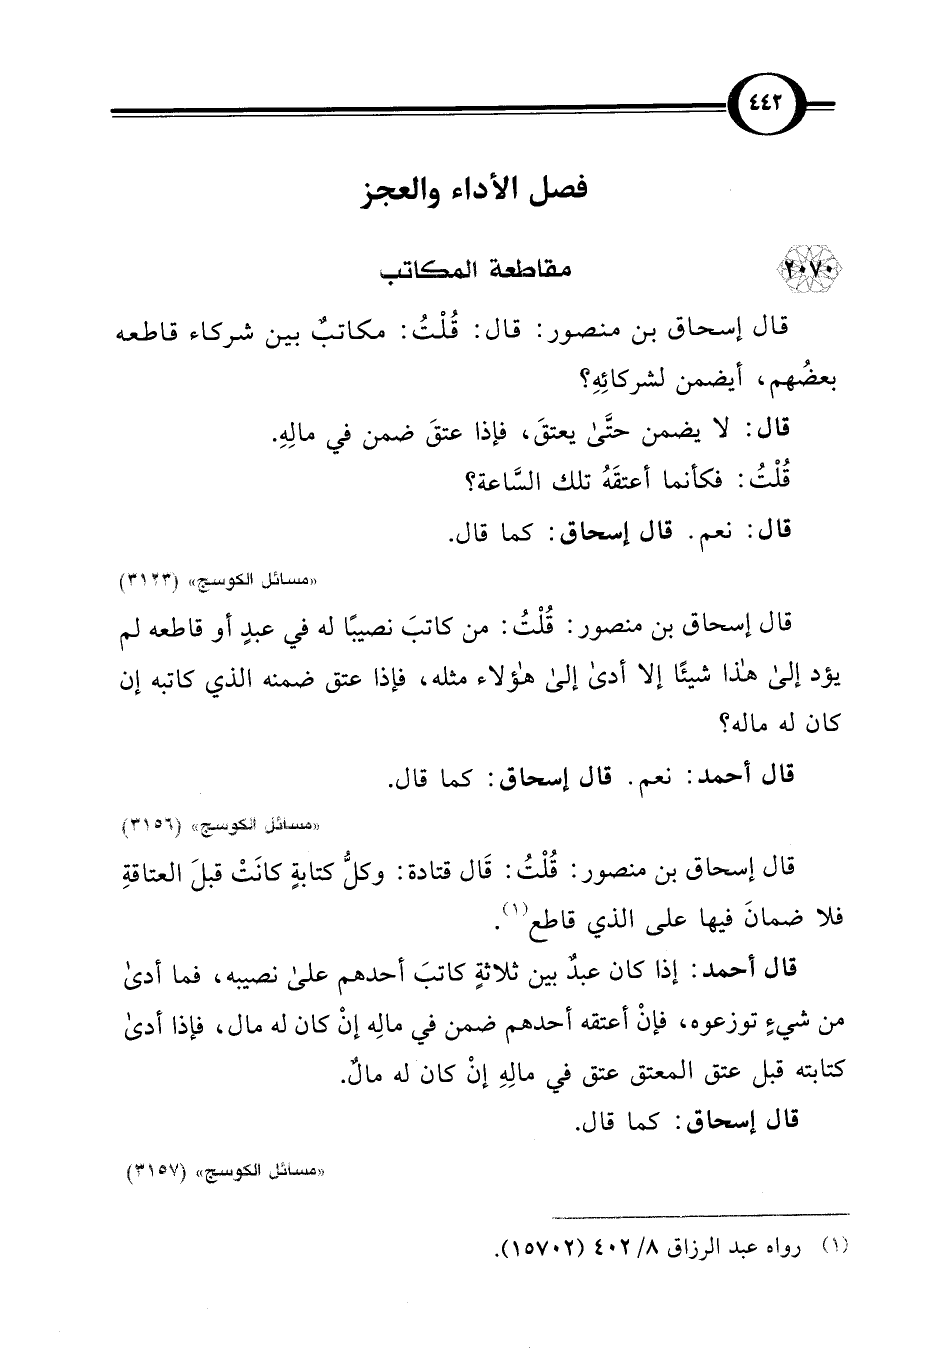 ٤٤٢
فصل الأداء والعجز
٢٠٧٠ مقاطعة المكاتب
قال إسحاق بن منصور: قال: قُلْتُ: مكاتبٌ بين شركاء قاطعه
بعضُهم، أيضمن لشركائِهِ؟
قال: لا يضمن حتَّىٰ يعتقَ، فإذا عتقَ ضمن في مالِهِ.
قُلْتُ: فكأنما أعتقَهُ تلك السَّاعة؟
قال: نعم. قال إسحاق: كما قال.
«مسائل الكوسج» (٣١٢٣)
قال إسحاق بن منصور: قُلْتُ: من كاتبَ نصيبًا له في عبدٍ أو قاطعه لم
يؤد إلىٰ هٰذا شيئًا إلا أدىٰ إلىٰ هٰؤلاء مثله، فإذا عتق ضمنه الذي كاتبه إن
كان له ماله؟
قال أحمد: نعم. قال إسحاق: كما قال.
«مسائل الكوسج» (٣١٥٦)
قال إسحاق بن منصور: قُلْتُ: قَال قتادة: وكلُّ كتابةٍ كانَتْ قبلَ العتاقةِ
فلا ضمانَ فيها على الذي قاطع(١).
قال أحمد: إذا كان عبدٌ بين ثلاثةٍ كاتبَ أحدهم علىٰ نصيبه، فما أدىٰ
من شيءٍ توزعوه، فإنْ أعتقه أحدهم ضمن في مالِه إنْ كان له مال، فإذا أدىٰ
كتابته قبل عتق المعتق عتق في مالِهِ إنْ كان له مالٌ.
قال إسحاق: كما قال.
«مسائل الكوسج» (٣١٥٧)
(١) رواه عبد الرزاق ٨/ ٤٠٢ (١٥٧٠٢).